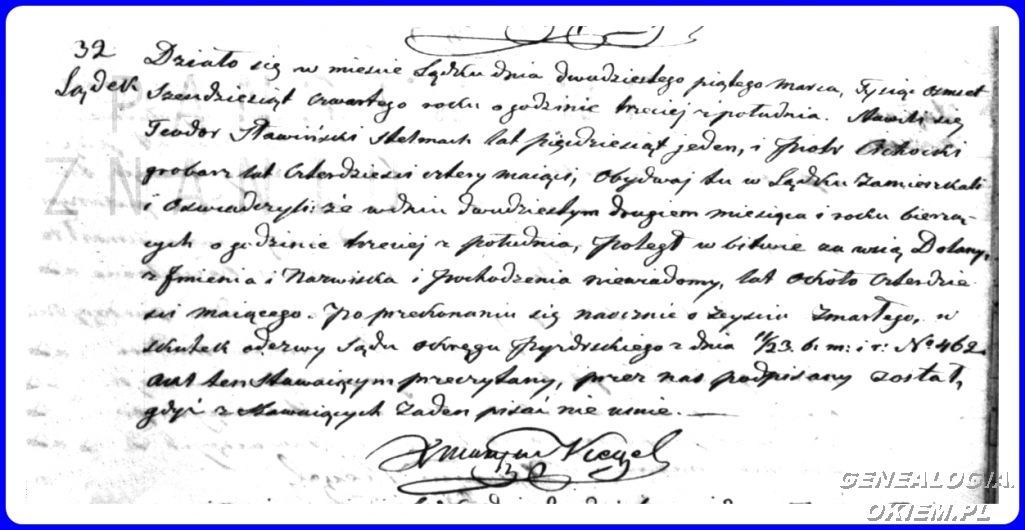 32
Lądek
Działo się w mieście Lądku dnia dwudziestego piątego marca, Tysiąc ośmset
Szesdziesiąt czwartego roku o godzinie trzeciej z południa. Stawili się
Teodor Sławiński Stelmach lat pięćdziesiąt jeden, i Piotr Cichocki
grobarz lat Czterdzieści cztery maiący, obydwaj tu w Lądku zamieszkali
i oświadczyli: że w dniu dwudziestym drugiem miesiąca i roku bierzą-
cych o godzinie trzeciej z południa, poległ w bitwie za wsią Dolany,
z Jmienia i Nazwiska i pochodzenia niewiadomy, lat około czterdzie-
ści maiącego. Po przekonaniu się naocznie o zejściu zmarłego, w
skutek odezwy Sądu okręgu Pyzdrskiego z dnia 11/23 b: m: i r: No 462.
akt ten stawaiącym przeczytany, przez nas podpisany został,
gdyż z stawaiących żaden pisać nie umie. —
X
GENEALOGIA.
OKIEM.PL